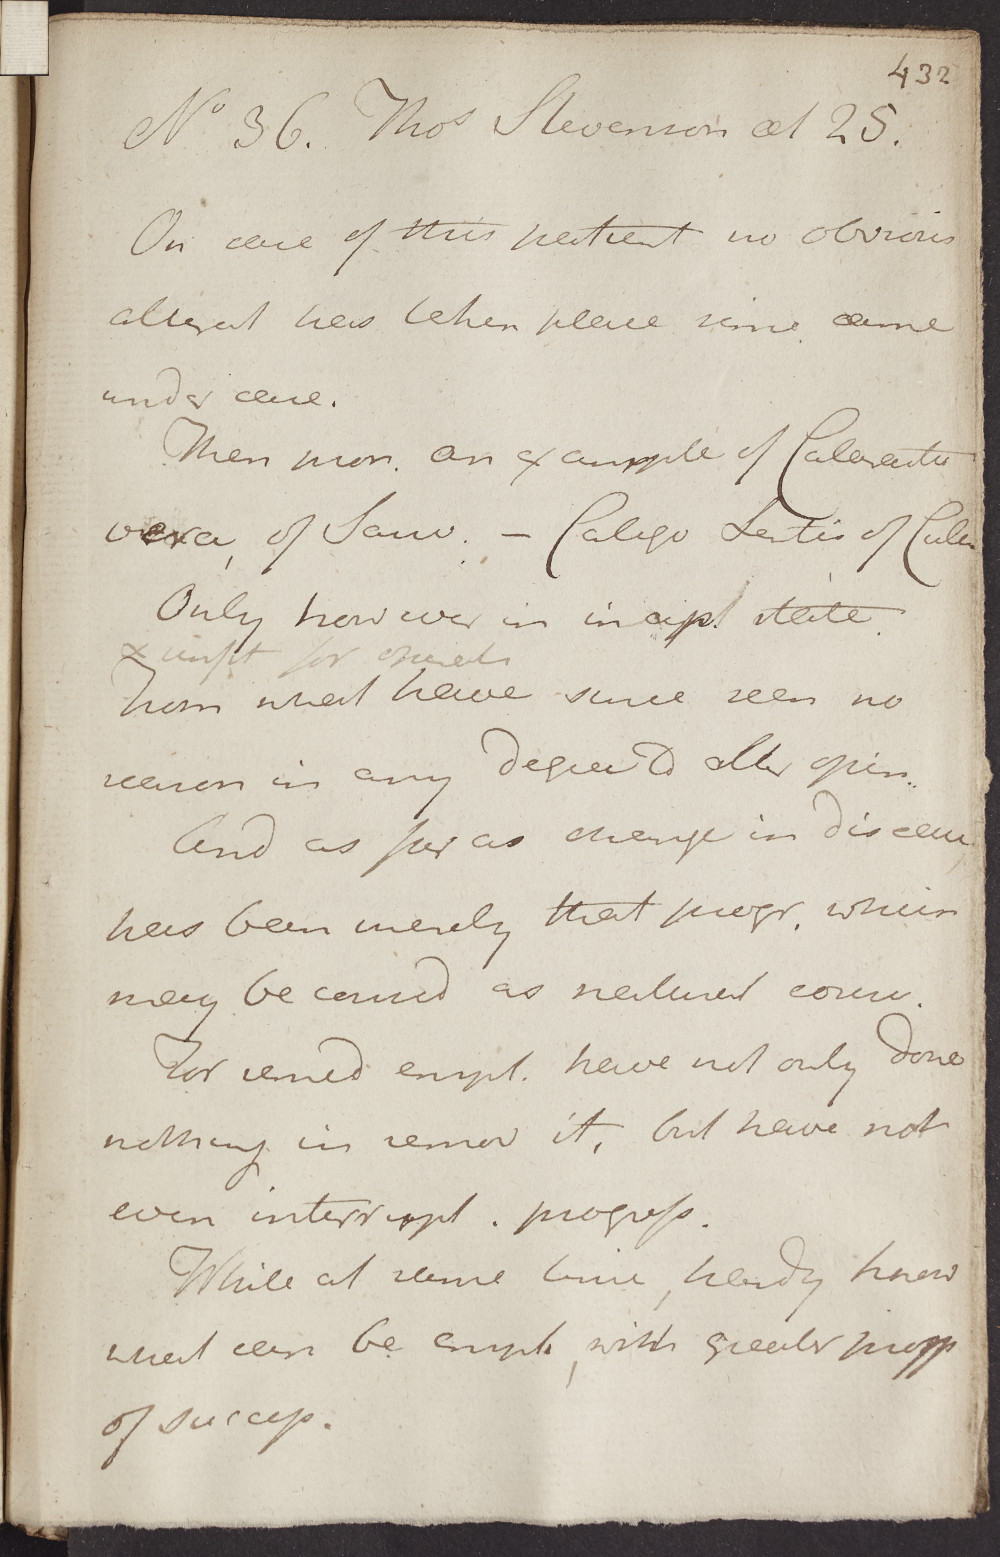 432
No 36. Thos Stevenson aet 25.
On case of this patient no obvious
alterat has taken place since came
under care.
Then pron. an example of Cataracta
vera, of Sauv. - Caligo Lentis of Cullen
Only however in incipt state
x unfit for operat
From what have since seen no
reason in any degree to alter opin.
And as far as change in disease,
has been merely that progr. which
may be consid as natural course.
For remed empl. have not only done
nothing in remov it, but have not
even interrupt. progress.
While at same time, hardly know
what can be empl, with greater prosp
of success.